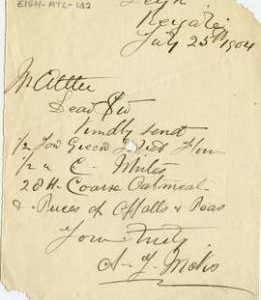 EIGH-ATL-1A2
Leigh
Reigate
July 25th 1904
Mr Attlee
Dear Sir
Kindly send
1/2 Ton Green Flour
1/2 "
28 lb. Coarse Oatmeal
& Prices of Offalls & Peas
Yours